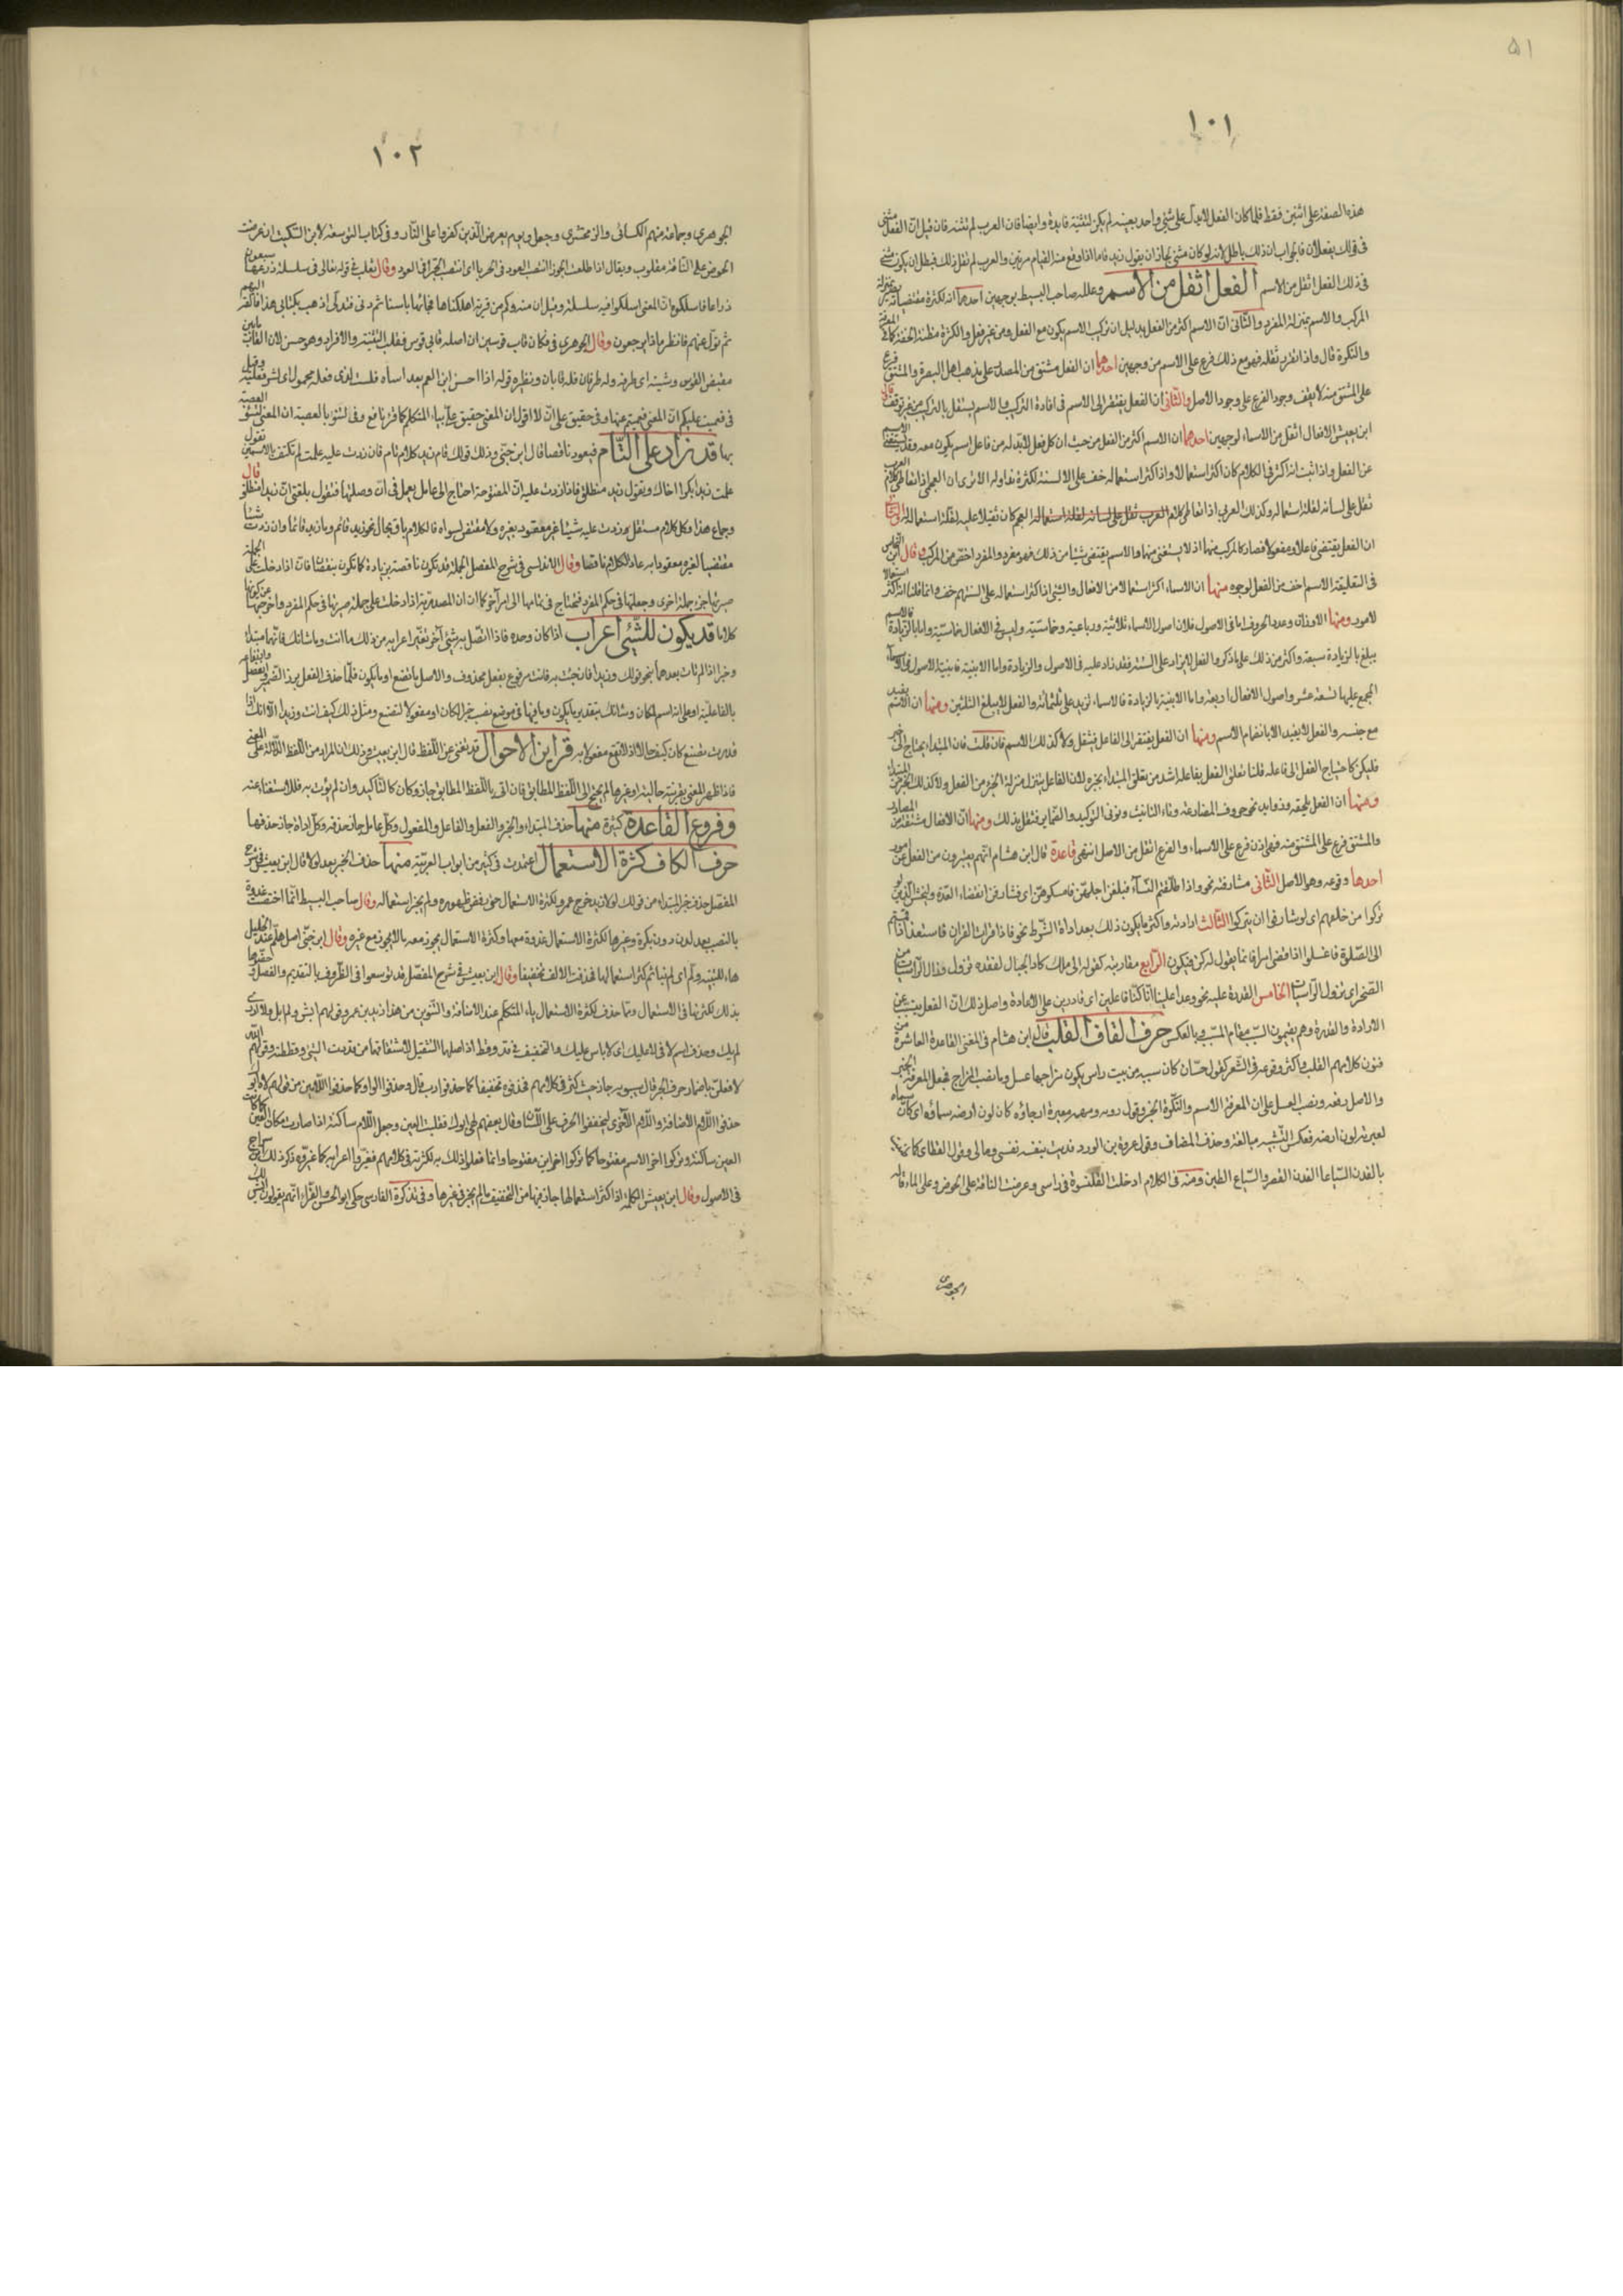 ٥١
١٠١
هذه الصفة على اثنين فقط فلما كان الفعل لا يدل على شئ واحد بعينه لم يكن لتثنيته فايدة وايضا فان العرب لم تثنه فان قيل ان الفعل مثنى
فى قولك يفعلان فالجواب ان ذلك باطل لانه لو كان مثنى لجاز ان يقول زيد قاما اذا وقع منه القيام مرتين والعرب لم تقل ذلك فبطل ان يكون مثنى
فى ذلك الفعل اثقل من الاسم الفعل اثقل من الاسم وعلله صاحب البسيط بوجهين احدهما انه لكثرة مقتضياته يصير بمنزلة
المركب والاسم بمنزلة المفرد والثانى ان الاسم اكثر من الفعل بدليل ان تركيب الاسم يكون مع الفعل ومن غير فعل والكثرة مظنة الخفة كما فى المعرفة
والنكرة قال واذا تقرر ثقله فهو مع ذلك فرع على الاسم من وجهين احدهما ان الفعل مشتق من المصدر على مذهب اهل البصرة والمشتق فرع
على المشتق منه لا يقف وجود الفرع على وجود الاصل والثانى ان الفعل يفتقر الى الاسم فى افادة التركيب والاسم يستقل بالتركيب من غير توقف قال
ابن يعيش الافعال اثقل من الاسماء لوجهين احدهما ان الاسم اكثر من الفعل من حيث ان كل فعل لا بد له من فاعل اسم يكون معه وقد يستغنى الاسم
عن الفعل واذا ثبت انه اكثر فى الكلام كان اكثر استعمالا واذا كثر استعماله خف على الالسنة لكثرة تداوله الا ترى ان العجمى اذا تعاطى كلام العرب
ثقل على لسانه لقلة استعماله وكذلك العربى اذا تعاطى كلام العجم كان ثقيلا عليه لقلة استعماله الثانى
ان الفعل يقتضى فاعلا ومفعولا فصار كالمركب منهما اذ لا يستغنى عنهما والاسم يقتضى شيئا من ذلك فهو مفرد والمفرد اخف من المركب وقال ابن النحاس
فى التعليقة الاسم اخف من الفعل لوجوه منها ان الاسماء اكثر استعمالا من الافعال والشئ اذا كثر استعماله على السنتهم خف وانما قلنا انه اكثر استعمالا
لامور ومنها الاوزان وعدد الحروف اما فى الاصول فلان اصول الاسماء ثلاثية ورباعية وخماسية وليس فى الافعال خماسية واما بالزيادة فالاسم
يبلغ بالزيادة سبعة واكثر من ذلك على ما ذكر والفعل لا يزاد على الستة فقد زاد عليه فى الاصول والزيادة واما الابنية فابنية الاصول فى الاسماء
المجمع عليها تسعة عشر واصول الافعال اربعة واما الابنية بالزيادة فالاسماء تزيد على ثلثمائة والفعل لا يبلغ الثلثين ومنها ان الاسم يفيد
مع جنسه والفعل لا يفيد الا بانضمام الاسم ومنها ان الفعل يفتقر الى الفاعل فيثقل ولا كذلك الاسم فان قلت فان المبتداء يحتاج الى خبر
فليكن كاحتياج الفعل الى فاعله قلنا تعلق الفعل بفاعله اشد من تعلق المبتداء بخبره لان الفاعل يتنزل منزلة الجزء من الفعل ولا كذلك الخبر من المبتداء
ومنها ان الفعل تلحقه زوايد نحو حروف المضارعة وتاء التانيث ونونى التوكيد والضماير فثقل بذلك ومنها ان الافعال مشتقة من المصادر
والمشتق فرع على المشتق منه فهى اذن فرع على الاسماء والفرع اثقل من الاصل انتهى قاعدة قال ابن هشام انهم يعبرون من الفعل عن امور
احدها وقوعه وهو الاصل الثانى مشارفته نحو واذا طلقتم النساء فبلغن اجلهن فامسكوهن اى فشارفن انقضاء العدة وليخش الذين لو
تركوا من خلفهم اى لو شارفوا ان يتركوا الثالث ارادته واكثر ما يكون ذلك بعد اداة الشرط نحو فاذا قرات القران فاستعذ اذا قمتم
الى الصلوة فاغسلوا اذا قضى امرا فانما يقول له كن فيكون الرابع مقاربته كقوله الى ملك كاد الجبال لفقده تزول وزال الراسيات من
الصخر اى تزول الراسيات الخامس القدرة عليه نحو وعدا علينا انا كنا فاعلين اى قادرين على الاعادة واصل ذلك ان الفعل يتسبب عن
الارادة والقدرة وهم يقيمون السبب مقام المسبب وبالعكس حرف القاف القلب قال ابن هشام فى المغنى القاعدة العاشرة من
فنون كلامهم القلب واكثر وقوعه فى الشعر كقول حسان كان سبيه من بيت راس يكون مزاجها عسل وماء نصب المزاج فجعل المعرفة الخبر
والاصل رفعه ونصب العسل على ان المعرفة الاسم والنكرة الخبر وقول روبه ومهمه مغبرة ارجاؤه كان لون ارضه سماؤه اى كان سماءه
لغبرتها لون ارضه فعكس التشبيه مبالغة وحذف المضاف وقول عروة بن الورد فديت بنفسه نفسى ومالى وقول القطامى كما
بالفدن السياعا الفدن القصر والسياع الطين ومنه فى الكلام ادخلت القلنسوة فى راسى وعرضت الناقة على الحوض وعلى الماء قاله
الجوهرى
١٠٢
الجوهرى وجماعة منهم الكسائى والزمخشرى وجعل ويوم يعرض الذين كفروا على النار وفى كتاب التوسعة لابن السكيت ان عرضت
الحوض على الناقة مقلوب ويقال اذا طلعت الجوزاء انتصب العود فى الحرباء اى انتصب الحرباء فى العود وقال ثعلب فى قوله تعالى فى سلسلة ذرعها سبعون
ذراعا فاسلكوه ان المعنى اسلكوا فيه سلسلة وقيل ان منه وكم من قرية اهلكناها فجائها باسنا ثم دنى فتدلى اذهب بكتابى هذا فالقه اليهم
ثم تول عنهم فانظر ماذا يرجعون وقال الجوهرى فى فكان قاب قوسين ان اصله قابى قوس فقلب التثنية والافراد وهو حسن لان القاب مابين
مقبض القوس وسيته اى طرفه وله طرفان فله قابان ونظيره قوله اذا احسن ابن العم بعد اساءة فلست لشرى فعله بحمول اى لشر فعليه وقيل
فى فعميت عليكم ان المعنى فعميتم عنها وفى حقيق على ان لا اقول ان المعنى حقيق على بياء المتكلم كما قرأ نافع وفى لتنوء بالعصبة ان المعنى لتنوء العصبة
بها قد زاد على التام فيعود ناقصا قال ابن جنى وذلك قولك قام زيد كلام تام فان زدت عليه علمت لم تكتف بالاسمين تقول
علمت زيدا بكرا اخاك وتقول زيد منطلق فاذا زدت عليه ان المفتوحة احتاج الى عامل يعمل فى ان وصلتها فتقول بلغنى ان زيدا منطلق قال
وجماع هذا وكل كلام مستقل زدت عليه شيئا غير معقود بغيره ولا مقتضى لسواه فالكلام باق بحاله نحو زيد قائم وما زيد قائما وان زدت شيئا
مقتضيا لغيره معقودا به عاد الكلام ناقصا وقال الاندلسى فى شرح المفصل الجملة قد تكون ناقصة بزيادة كما تكون بنقصان فان اذا دخلت على الجملة
صيرتها جزء جملة اخرى وجعلتها فى حكم المفرد فتحتاج فى تمامها الى امر آخر كما ان ان المصدرية اذا دخلت على جملة صيرتها فى حكم المفرد واخرجتها من كونها
كلاما قد يكون للشئ اعراب اذا كان وحده فاذا اتصل به شئ آخر تغير اعرابه من ذلك ما انت وما شانك فانهما مبتدا
وخبر اذا لم تات بعدهما بنحو قولك وزيدا فان جئت به فانت مرفوع بفعل محذوف والاصل ما تصنع او ما تكون فلما حذف الفعل برز الضمير وانفصل
بالفاعلية او على انه اسم لكان وشانك بتقدير ما يكون وما فيهما فى موضع نصب خبر الكان او مفعولا لتصنع ومثل ذلك كيف انت وزيدا الا انك اذا
قدرت تصنع كان كيف حالا اذ لا تقع مفعولا به قراين الاحوال قد تغنى عن اللفظ قال ابن يعيش وذلك ان المراد من اللفظ الدلالة على المعنى
فاذا ظهر المعنى بقرينة حالية او غيرها لم يحتج الى اللفظ المطابق فان اتى باللفظ المطابق جاز وكان كالتاكيد وان لم يؤت به فللاستغناء عنه
وفروع القاعدة كثيرة منها حذف المبتداء والخبر والفعل والفاعل والمفعول وكل عامل جاز حذفه وكل اداة جاز حذفها
حرف الكاف كثرة الاستعمال اعتمدت فى كثير من ابواب العربية منها حذف الخبر بعد لولا قال ابن يعيش فى شرح
المفصل حذف خبر المبتداء من قولك لولا زيد خرج عمرو لكثرة الاستعمال حتى رفض ظهوره ولم يجز استعماله وقال صاحب البسيط انما اختصت غدوة
بالنصب بعد لدن دون بكرة وغيرها لكثرة الاستعمال غدوة معها وكثرة الاستعمال يجوز معه ما لا يجوز مع غيره وقال ابن جنى اصل هلم عند الخليل
هاء للتنبيه ولم اى لم بنا ثم كثر استعمالها فحذفت الالف تخفيفا وقال ابن يعيش فى شرح المفصل قد توسعوا فى الظروف بالتقديم والفصل وخصوها
بذلك لكثرتها فى الاستعمال ومما حذف لكثرة الاستعمال ياء المتكلم عند الاضافة والتنوين من هذا زيد بن عمرو وقولهم ايش ولم ابل ولا ادر
لم يك وحذف اسم لا فى لا عليك اى لا باس عليك والتخفيف فى قد وقط اذ اصلها التثقيل لاشتقاقهما من قددت الشئ وقططته وقولهم الله
لا فعلن باضمار حرف الجر قال سيبويه جاز حيث كثر فى كلامهم فحذفوه تخفيفا كما حذفوا رب قال وحذفوا الواو كما حذفوا اللامين من قولهم لاه ابوك
حذفوا اللام الاضافة واللام الاخرى ليخففوا الحرف على اللسان وقال بعضهم لهى ابوك فقلب العين وجعل اللام ساكنة اذا صارت مكان العين كما كانت
العين ساكنة وتركوا اخر الاسم مفتوحا كما تركوا اخر اين مفتوحا وانما فعلوا ذلك به لكثرته فى كلامهم فغيروا اعرابه كما غيروه ذكر ذلك ابن السراج
فى الاصول وقال ابن يعيش الكلمة اذا كثر استعمالها جاز فيها من التخفيف ما لم يجز فى غيرها وفى تذكرة الفارسى حكى ابو الحسن والفراء انهم يقولون ايش لك